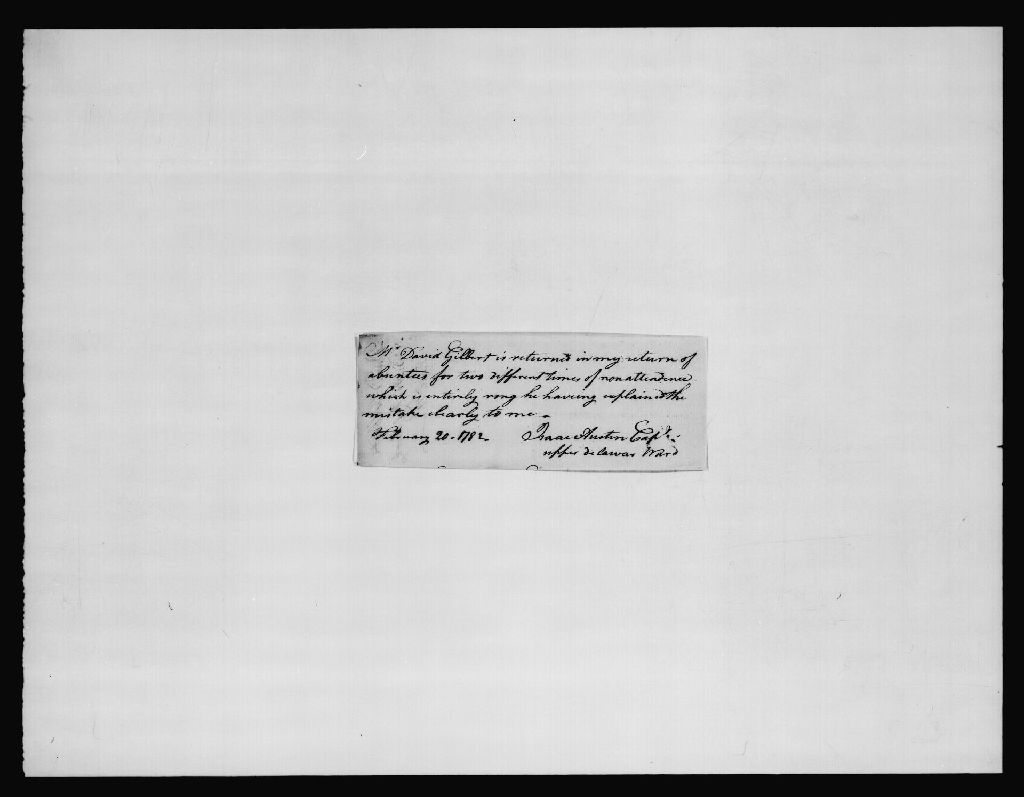 Mr David Gilbert is returned in my return of
absentees for two different times of nonattendence
which is entirely rong he haveing explained the
mistake clearly to me -
February 20 - 1782 Isaac Austin Capt.
upper delawar Ward